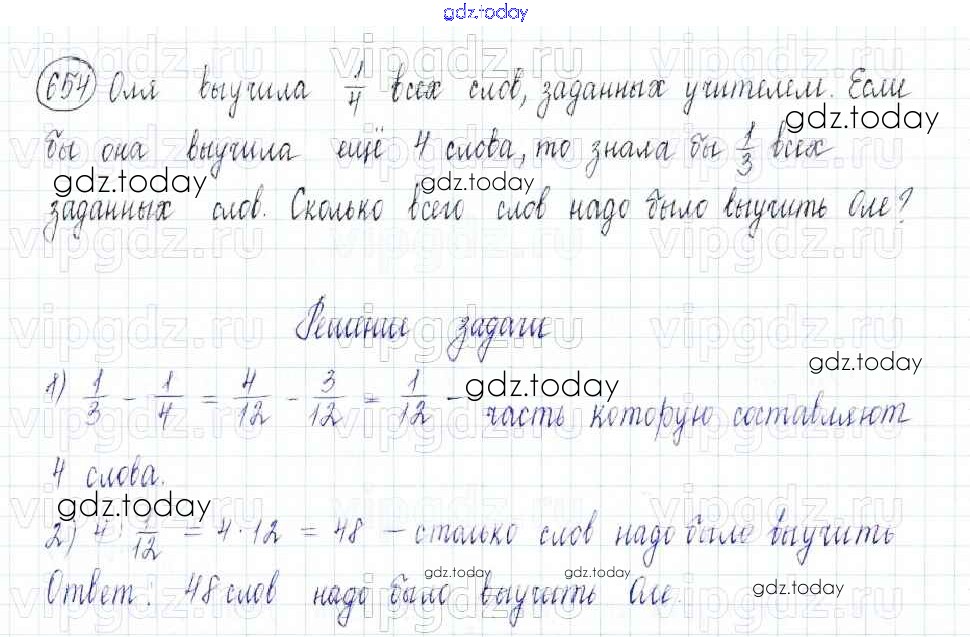 gdz.today
654 Оля выучила 1/4 всех слов, заданных учителем. Если
gdz.today
бы она выучила ещё 4 слова, то знала бы 1/3 всех
gdz.today gdz.today
заданных слов. Сколько всего слов надо было выучить Оле?
Решение задачи
gdz.today
1) 1/3 - 1/4 = 4/12 - 3/12 = 1/12 - часть которую составляют
gdz.today
4 слова.
gdz.today
2) 4 : 1/12 = 4 · 12 = 48 - столько слов надо было выучить
gdz.today gdz.today
Ответ: 48 слов надо было выучить Оле.
gdz.today